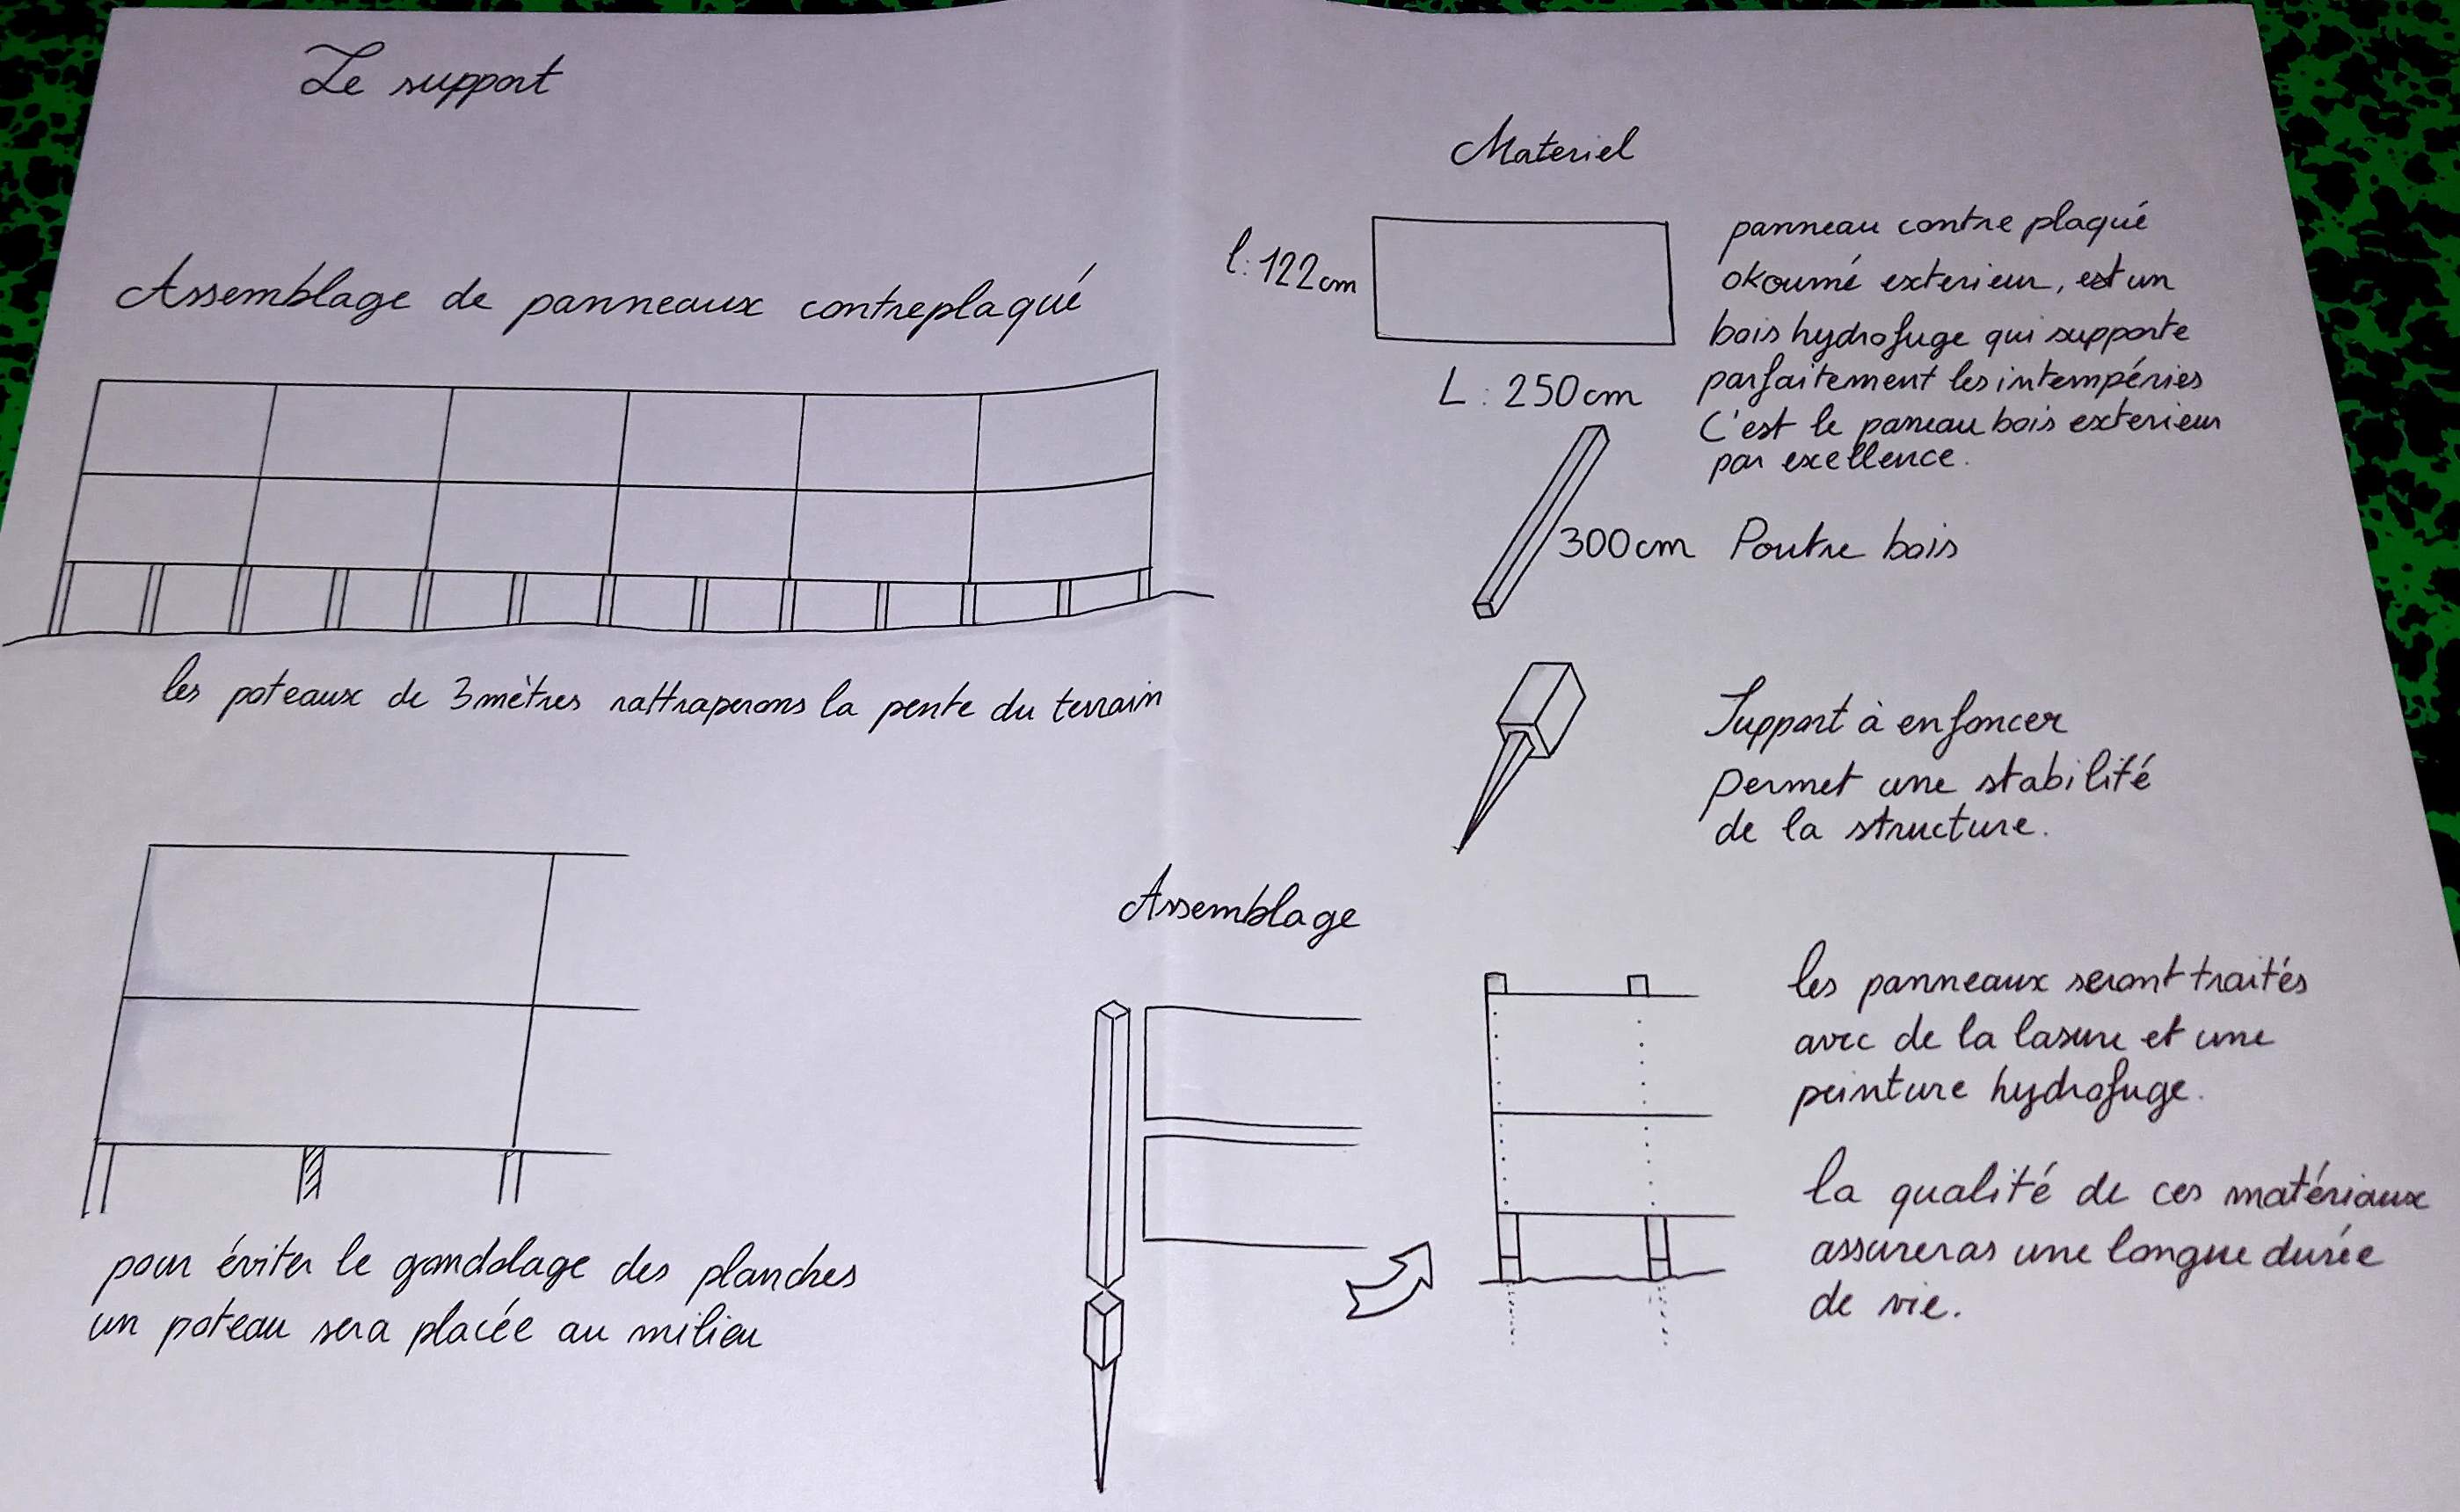 Le support
Assemblage de panneaux contreplaqué
les poteaux de 3mètres rattraperons la pente du terrain
pour éviter le gondolage des planches
un poteau sera placée au milieu
Materiel
l: 122cm
L: 250cm
panneau contre plaqué
okoumé exterieur, est un
bois hydrofuge qui supporte
parfaitement les intempéries
C'est le paneau bois exterieur
par exellence.
300cm Poutre bois
Support à enfoncer
permet une stabilité
de la structure.
Assemblage
les panneaux seront traités
avec de la lasure et une
peinture hydrofuge.
la qualité de ces matériaux
assureras une longue durée
de vie.